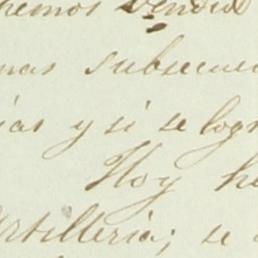 hemos vendid
nas subsecue
ias y si se logr
Hoy he
rtilleria; se